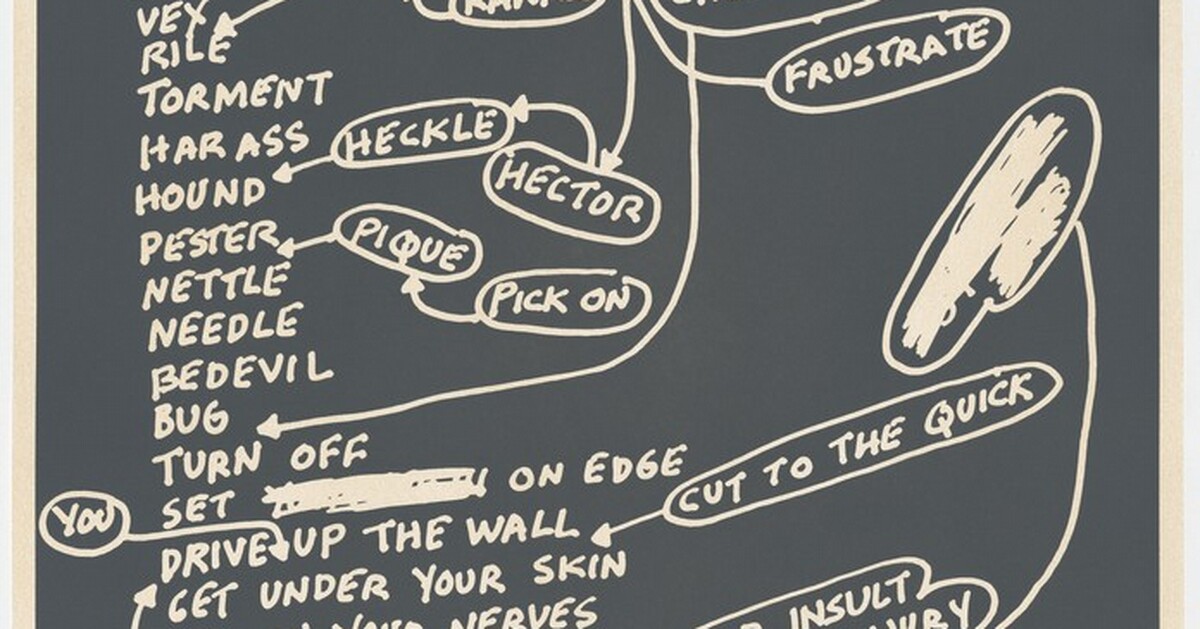 VEX
RILE
TORMENT
HARASS
HOUND
PESTER
NETTLE
NEEDLE
BEDEVIL
BUG
TURN OFF
SET ON EDGE
DRIVE UP THE WALL
GET UNDER YOUR SKIN
NERVES
YOU
HECKLE
HECTOR
PIQUE
PICK ON
FRUSTRATE
CUT TO THE QUICK
INSULT